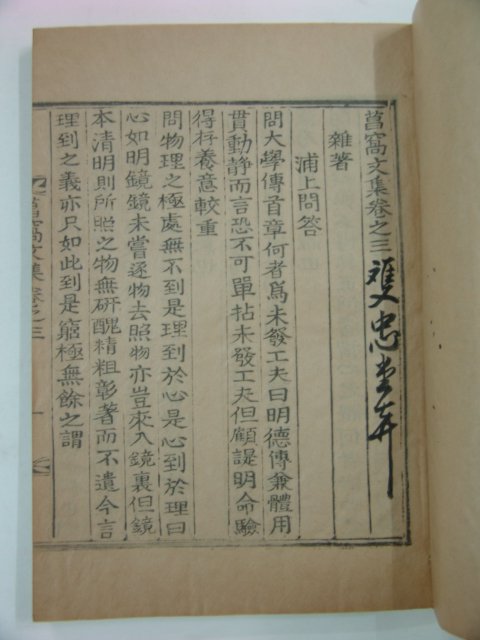 菖窩文集卷之三
雙忠堂弆
雜著
浦上問答
問大學傳首章何者爲未發工夫曰明德傳兼體用
貫動静而言恐不可單拈未發工夫但顧諟明命驗
得存養意較重
問物理之極處無不到是理到於心是心到於理曰
心如明鏡鏡未嘗逐物去照物亦豈來入鏡裏但鏡
本清明則所照之物無硏醜精粗彰著而不遺今言
理到之義亦只如此到是窮極無餘之謂
文集卷之三